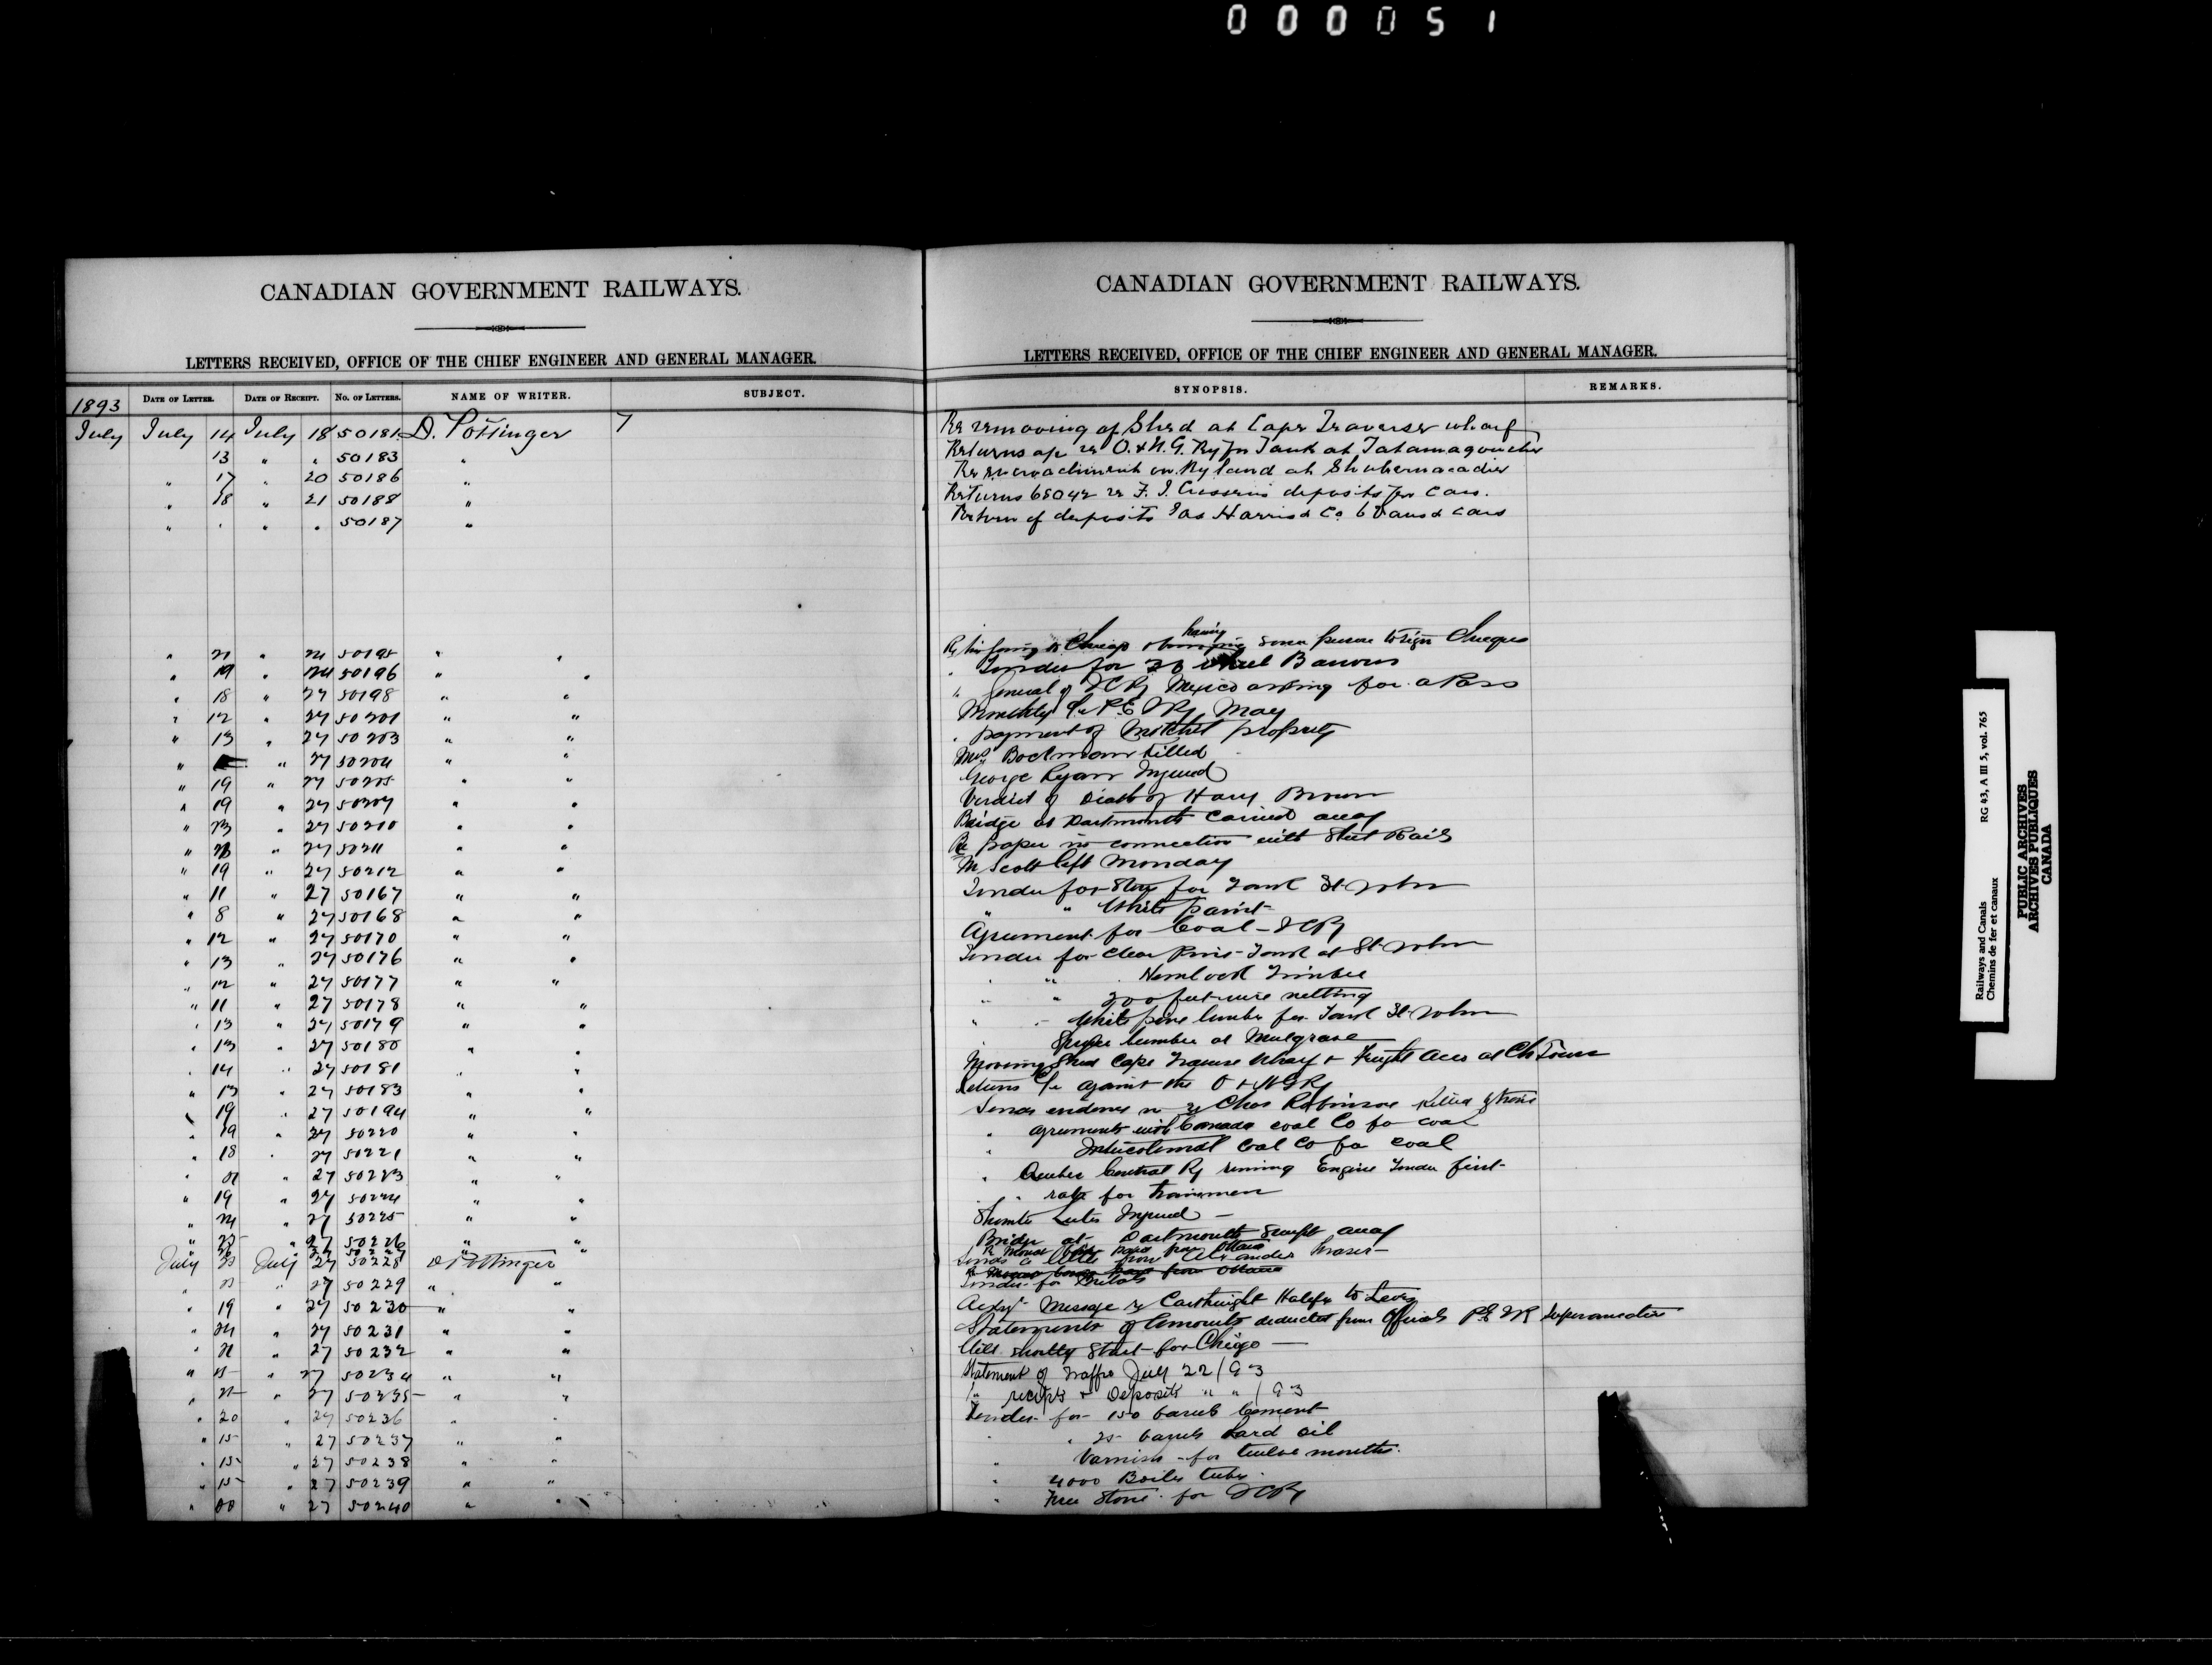 000051
CANADIAN GOVERNMENT RAILWAYS.
LETTERS RECEIVED, OFFICE OF THE CHIEF ENGINEER AND GENERAL MANAGER.
1893 DATE OF LETTER. DATE OF RECEIPT. NO. OF LETTERS. NAME OF WRITER. SUBJECT.
July July 14 July 18 50181 D. Pottinger 7
13 " " 50183 "
" 17 " 20 50186 "
" 18 " 21 50188 "
" " " " 50187 "
" 21 " 24 50195 " "
" 19 " 24 50196 " "
" 18 " 27 50198 " "
" 12 " 27 50201 " "
" 13 " 27 50203 " "
" " 27 50204 " "
" 19 " 27 50205 " "
" 19 " 27 50207 " "
" 23 " 27 50210 " "
" " 27 50211 " "
" 19 " 27 50212 " "
" 11 " 27 50167 " "
" 8 " 27 50168 " "
" 12 " 27 50170 " "
" 13 " 27 50176 " "
" 12 " 27 50177 " "
" 11 " 27 50178 " "
" 13 " 27 50179 " "
" 13 " 27 50180 " "
" 14 " 27 50181 " "
" 13 " 27 50183 " "
" 19 " 27 50194 " "
" 19 " 27 50220 " "
" 18 " 27 50221 " "
" 21 " 27 50223 " "
" 19 " 27 50224 " "
" 24 " 27 50225 " "
" " 27 50226 " "
27 50227
July July 27 50228 D Pottinger
" " 27 50229 " "
" 19 " 27 50230 " "
" 24 " 27 50231 " "
" 21 " 27 50232 " "
" " 27 50234 " "
" " 27 50235 " "
" 20 " 27 50236 " "
" 15 " 27 50237 " "
" 15 " 27 50238 " "
" 15 " 27 50239 " "
" " 27 50240 " "
CANADIAN GOVERNMENT RAILWAYS.
LETTERS RECEIVED, OFFICE OF THE CHIEF ENGINEER AND GENERAL MANAGER.
SYNOPSIS. REMARKS.
Re removing of Shed at Cape Traverse wharf
Returns a/c re O. & N. G. Ry for Tank at Tatamagouche
Re encroachment on Ry land at Shubenacadie
Returns 68042 re F. J. deposits for Cars.
Return of deposits Jas Harris & Co 6 Vans & cars
Re his going to Chicago & having some person to sign Cheques
Tender for Wheel Barrows
" General of ICRy Mexico asking for a Pass
Monthly a/c P.E.I.Ry May
" payment of Mitchel property
Killed
George Ryan Injured
Verdict of Death of Harry Brown
Bridge at Dartmouth Carried away
Re paper in connection with Steel Rails
Mr Scott left Monday
Tender for for Tank St John
" " White paint
Agreement for Coal - ICRy
Tender for Clear Pine Tank at St. John
" " Hemlock Timber
" " 200 feet wire netting
" " White pine lumber for Tank St John
" Spruce lumber at Mulgrave
Moving Shed Cape Traverse Wharf & Freight at Ch Town
Returns a/c against the O & NGRy
Sends evidence in re Chas Robinson Killed
" agreements with Canada coal Co for coal
" Intercolonial Coal Co for coal
" Quebec Central Ry running Engine Tender first
" " rate for trainmen
Injured
Bridge at Dartmouth Swept away
Sends a letter from Alexander Fraser
Tender for
Message re Cartwright Halifx to Levis
Statements of Amounts deducted from Officials P.E.I.R Superannuation
Will shortly Start for Chicago
Statement of Traffic July 22/93
" receipts & Deposits " " /93
Tender for 150 barrels Cement
" " 25 barrels Lard oil
" Varnish for twelve months.
" 4000 Boiler tubes.
" Free Stone for ICRy
Railways and Canals
Chemins de fer et canaux
RG 43, A III 5, vol. 765
PUBLIC ARCHIVES
ARCHIVES PUBLIQUES
CANADA